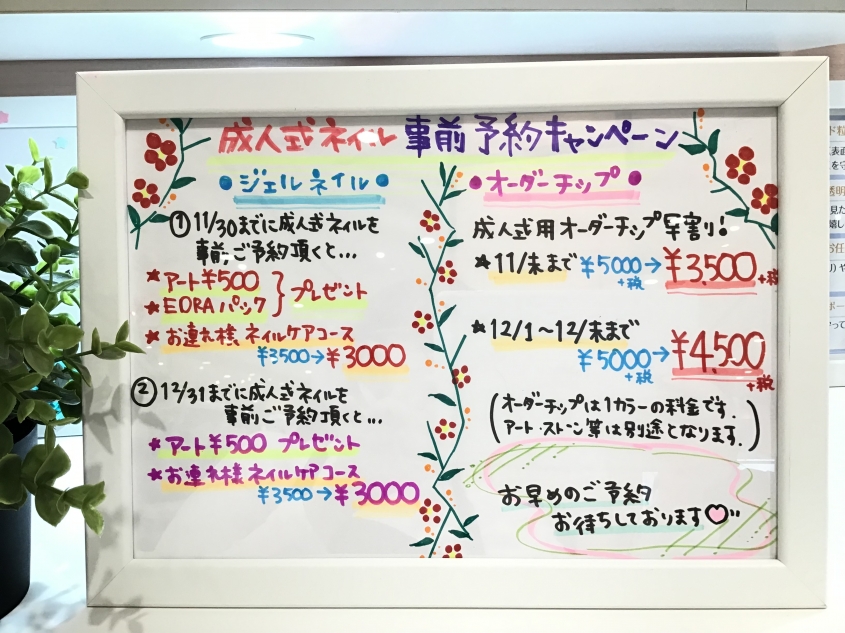 成人式ネイル 事前予約キャンペーン
●ジェルネイル●
① 11/30までに成人式ネイルを
事前ご予約頂くと…
★アート¥500
★EORAパック
} プレゼント
★お連れ様ネイルケアコース
¥3500→¥3000
② 12/31までに成人式ネイルを
事前ご予約頂くと…
★アート¥500 プレゼント
★お連れ様ネイルケアコース
¥3500→¥3000
●オーダーチップ●
成人式用オーダーチップ早割り!
★11/末まで ¥5000+税→¥3,500+税
★12/1〜12/末まで
¥5000+税→¥4,500+税
(オーダーチップは1カラーの料金です.
アート・ストーン等は別途となります.)
お早めのご予約
お待ちしております♡